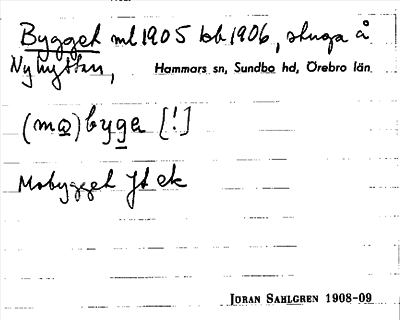 Bygget ml 1905 lok 1906, stuga å
Nyhyttan, Hammars sn, Sundbo hd, Örebro län
(mω)byga [!]
Mobygget Jt ek
JÖRAN SAHLGREN 1908-09